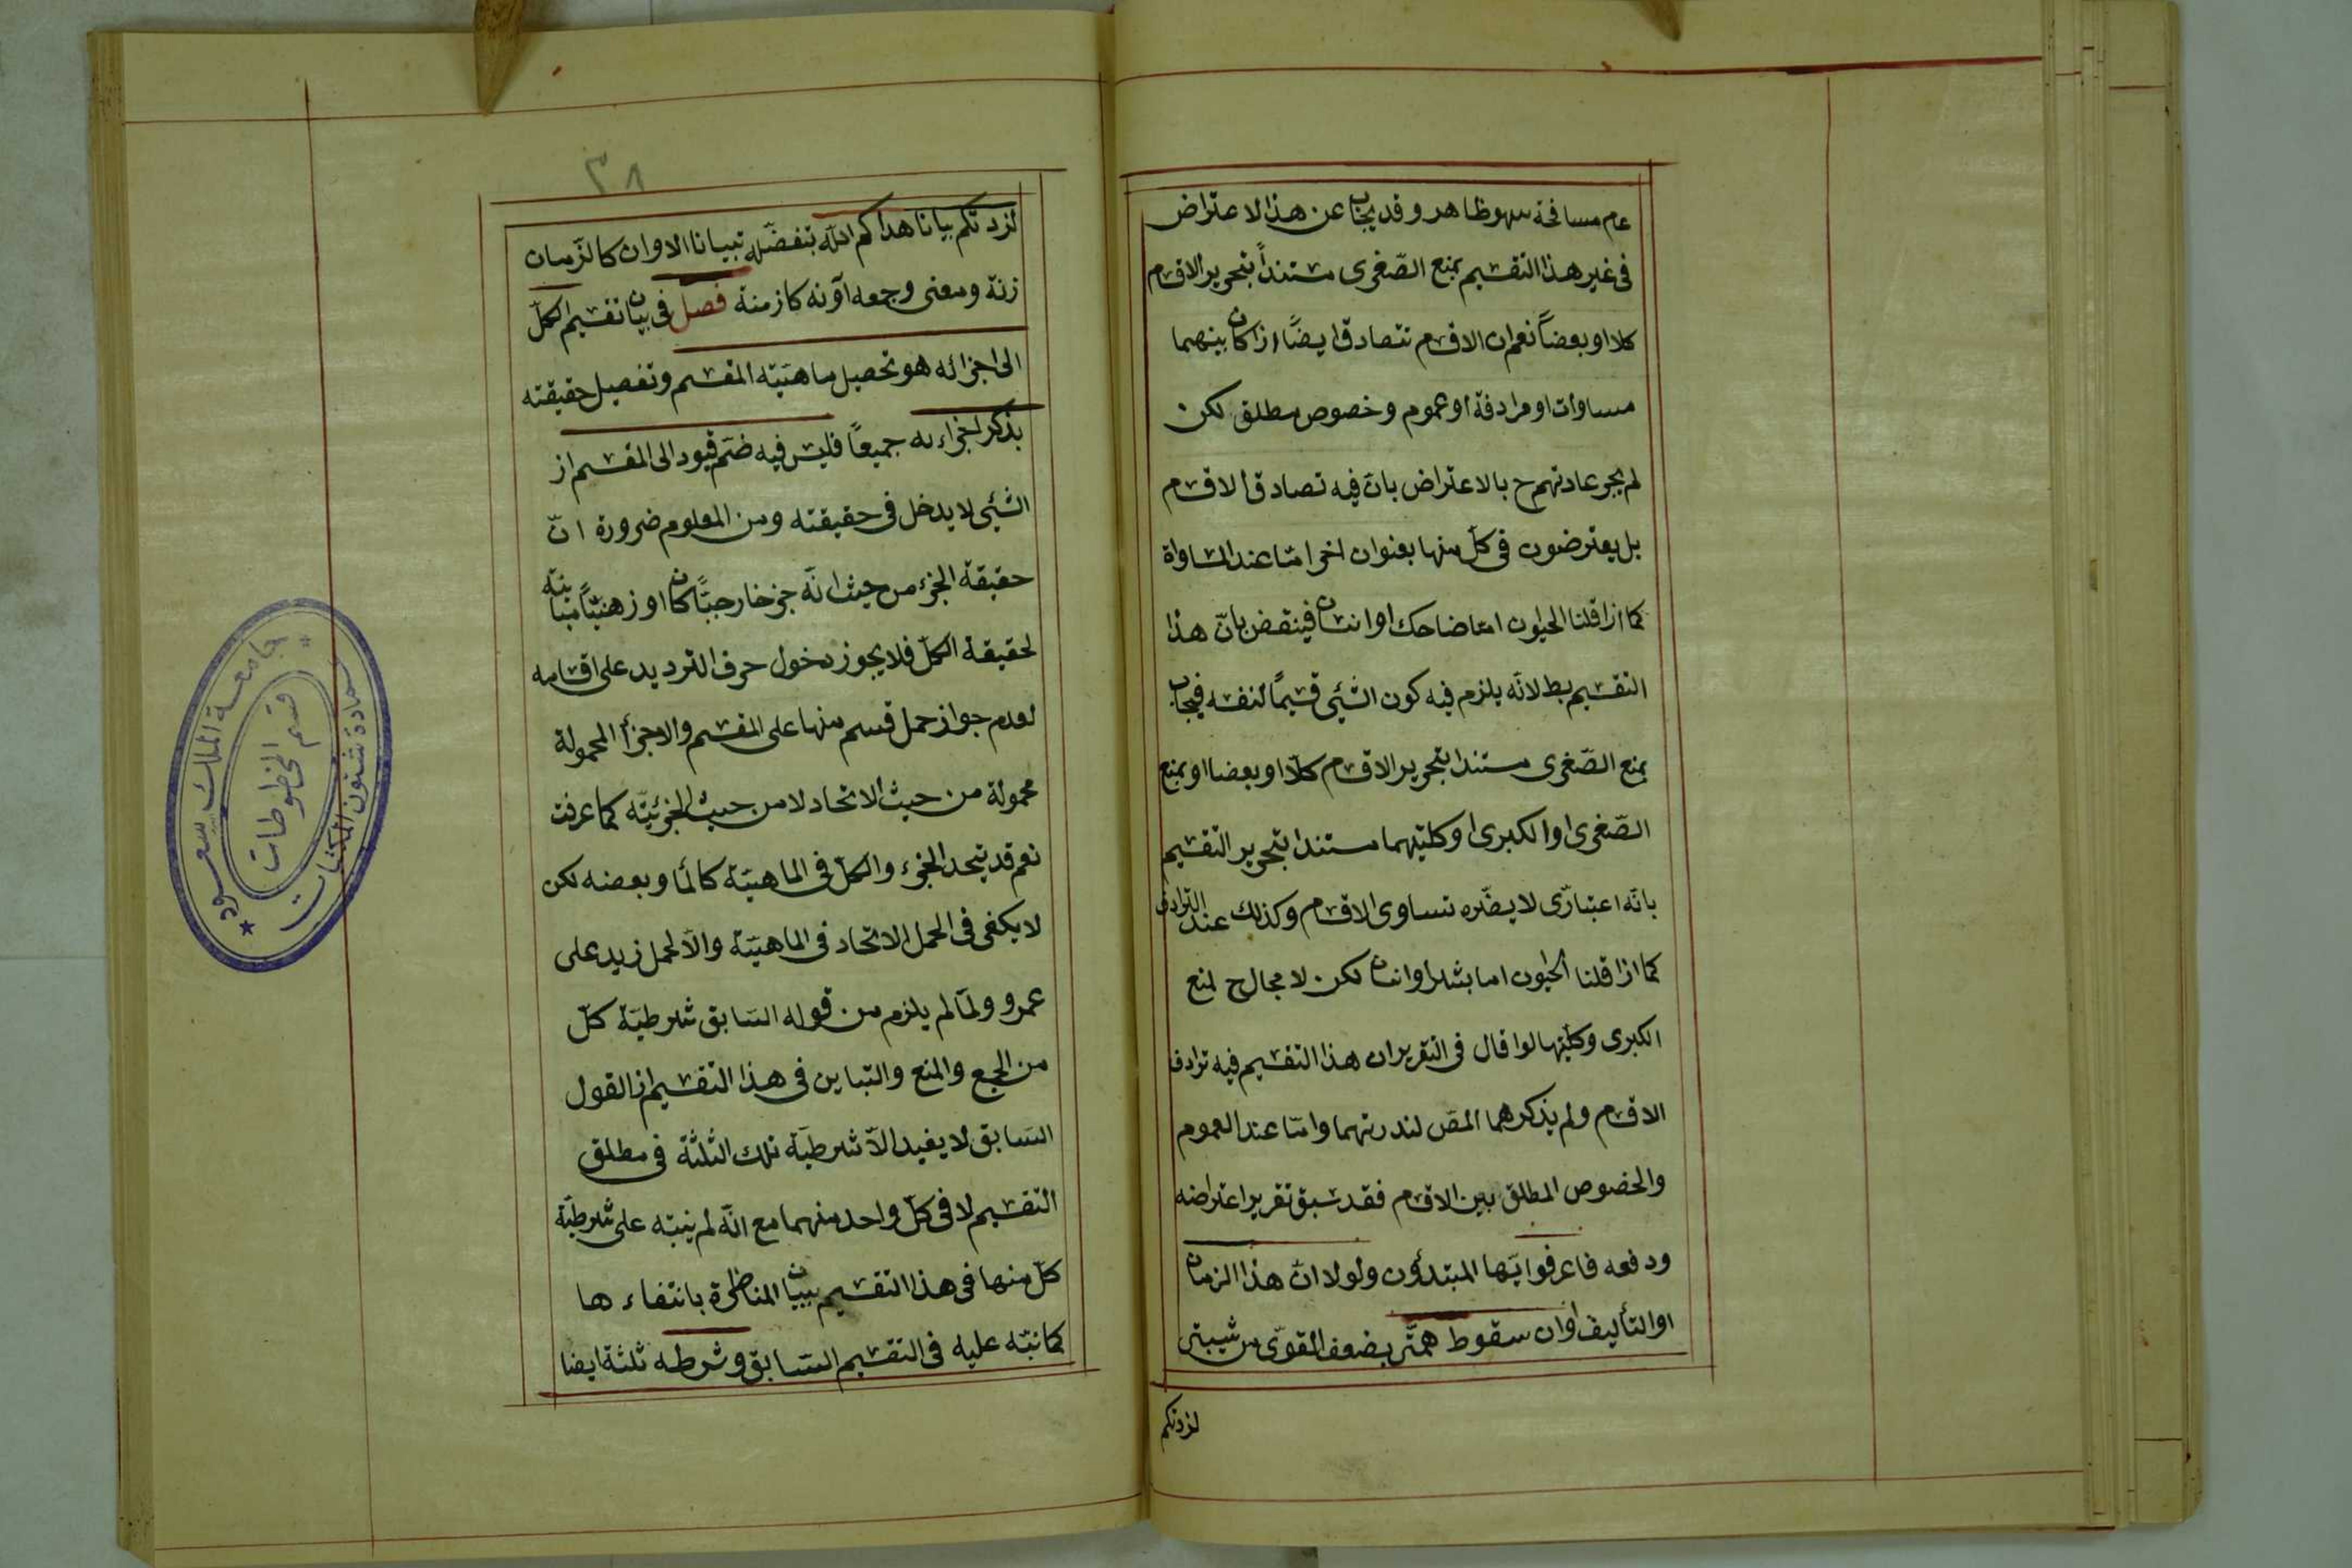 عام مسافحة سهو ظاهر وقد يجاب عن هذا الاعتراض
فى غير هذا التقسيم بمنع الصّغرى مستنداً بتحرير الاقسام
كلا او بعضاً نعم ان الاقسام تتصادق ايضًا اذا كان بينهما
مساوات او مرادفة او عموم وخصوص مطلق لكن
لم يجر عادتهم ح بالاعتراض بانّ فيه تصادق الاقسام
بل يعترضون فى كلّ منها بعنوان اخر امّا عند المساواة
كما اذا قلنا الحيوان امّا ضاحك او انسان فينقض بانّ هذا
التقسيم بط لانّه يلزم فيه كون الشّيئ قسيمًا لنفسه فيجاب
بمنع الصّغرى مستندا بتحرير الاقسام كلّا او بعضا او بمنع
الصّغرى او الكبرى او كليتهما مستندا بتحرير التّقسيم
بانّه اعتبارّى لا يضّره تساوى الاقسام وكذلك عند التّرادف
كما اذا قلنا الحيوان اما بشر او انسان لكن لا مجال ح لمنع
الكبرى وكلّيتها لو اقال فى التقرير ان هذا التقسيم فيه ترادف
الاقسام ولم يذكرهما المصّ لندرتهما وامّا عند العموم
والخصوص المطلق بين الاقسام فقد سبق تقرير اعتراضه
ودفعه فاعرفوا ايّها المبتدؤن ولولا انّ هذا الزمان
او التأليف اوان سقوط همّتى بضعف القوّى من شيبتى
لزدتكم
٣٨
لزدتكم بيانا هداكم اللّه بتفضّله تبيانا الاوان كالزّمان
زنة ومعنى وجمعه آونه كازمنة فصل فى بيان تقسيم الكلّ
الى اجزائه هو تحصيل ماهيّته المقسم وتفصيل حقيقته
بذكر اجزاءه جميعًا فليس فيه ضمّ قيود الى المقسم اذ
الشّيئ لا يدخل فى حقيقته ومن المعلوم ضرورة انّ
حقيقة الجزء من حيث انّه جزء خارجيًّا كان او ذهنيّاً مباينة
لحقيقة الكلّ فلا يجوز دخول حرف الترديد على اقسامه
لعدم جواز حمل قسم منها على المقسم والاجزأ المحمولة
محمولة من حيث الاتحاد لا من حيث الجزئيّة كما عرفت
نعم قد يتحد الجزء والكلّ فى الماهيّة كالمأ وبعضه لكن
لا يكفى فى الحمل الاتحاد فى الماهيّة والّا لحمل زيد على
عمرو ولمّا لم يلزم من قوله السّابق شرطيّة كلّ
من الجمع والمنع والتباين فى هذا التقسيم اذ القول
السّابق لا يفيد الّا شرطيّة تلك الثلثة فى مطلق
التقسيم لا فى كلّ واحد منهما مع انّه لم ينبّه على شرطيّة
كلّ منها فى هذا التقسيم ببيان المناظرة بانتفاءها
كما نبّه عليه فى التقسيم السّابق وشرطه ثلثة ايضا
جامعة الملك سعود
عمادة شئون المكتبات
قسم المخطوطات